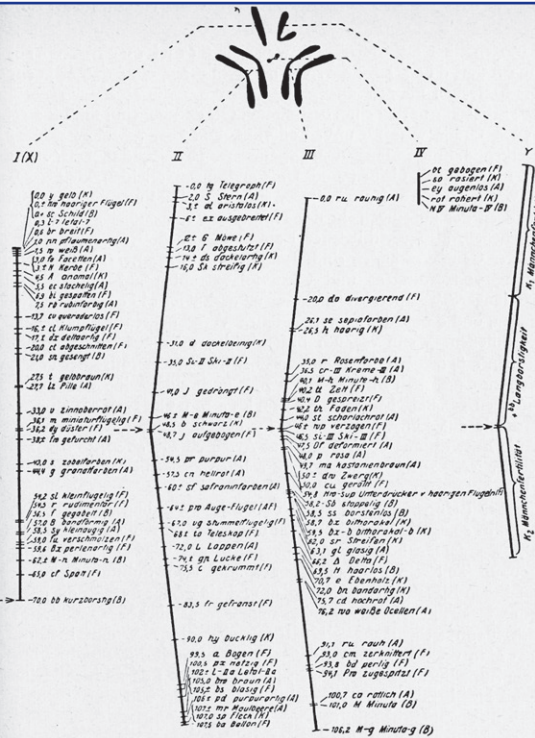 I (X)
II
III
IV
Y
0,0 y gelb (K)
0,3 l-7 letal-7
0,6 br breit (F)
1,5 w weiß (A)
3,0 fa Facetten (A)
3,± N Kerbe (F)
4,5 A anomal (K)
5,5 ec stachelig (A)
6,9 bi gespalten (F)
7,5 rb rubinfarbig (A)
13,7 cv queraderlos (F)
16,± cl Klumpflügel (F)
17,± dx deltaartig (F)
20,0 ct abgeschnitten (F)
21,0 sn gesengt (B)
27,5 t gelbbraun (K)
27,7 lz Pille (A)
33,0 v zinnoberrot (A)
36,1 m miniaturflügelig (F)
36,2 dy düster (F)
38,± fu gefurcht (A)
43,0 s zobelfarben (K)
44,4 g granatfarben (A)
54,2 sl kleinflügelig (F)
54,5 r rudimentär (F)
56,5 f gegabelt (B)
57,0 B bandförmig (A)
58,5 sy kleinäugig (A)
59,0 fu verschmolzen (F)
59,6 Bx perlenartig (F)
62,± M-n Minuta-n (B)
65,0 cf Spalt (F)
70,0 bb kurzborstig (B)
0,0 tg Telegraph (F)
2,0 S Stern (A)
3,± al aristalos (K)
6± ex ausgebreitet (F)
12± G Möwe (F)
13,0 T abgestutzt (F)
14± ds dackelartig (K)
16,0 Sk streifig (K)
31,0 d dackelbeinig (K)
35,0 Ski-II Ski-II (F)
41,0 J gedrängt (F)
46± M-e Minuta-e (B)
48,5 b schwarz (K)
48,7 j aufgebogen (F)
54,5 pr purpur (A)
57,5 cn hellrot (A)
60± sf safraninfarben (A)
64± pro Auge-Flügel (AF)
67,0 vg stummelflügelig (F)
68± to Teleskop (F)
72,0 L Lappen (A)
74± gp Lücke (F)
75,5 c gekrümmt (F)
83,5 fr gefranst (F)
90,0 hy bucklig (K)
99,5 a Bogen (F)
100,5 px netzig (F)
102± L-IIa Letal-IIa
105,0 bw braun (A)
105± bs blasig (F)
106± pd purpurartig (A)
107± mr Maulbeere (A)
107,0 sp Fleck (K)
107,5 ba Ballon (F)
0,0 ru raunig (A)
20,0 da divergierend (F)
26,± se sepiafarben (A)
26,5 h haarig (K)
35,0 r Rosenfarbe (A)
36,5 cr-III Kreme-III (A)
40,1 M-h Minuta-h (B)
40,2 tt Zelt (F)
40,4 D gespreizt (F)
40,2 th Faden (K)
44,0 st scharlachrot (A)
46± wp verzogen (F)
46,5 Si-III Ski-III (F)
47,5 Df deformiert (A)
48,0 p rosa (A)
49,7 ma kastanienbraun (A)
50± dw Zwerg (K)
50,0 cu gerollt (F)
54,8 Hw-sup Unterdrücker v haarigen Flügeln (F)
58,2 Sb stoppelig (B)
58,5 ss borstenlos (B)
58,7 bx bithorakal (K)
59,5 bx-b bithorakal-b (K)
62,0 sr Streifen (K)
63,1 gl glasig (A)
66,2 Δ Delta (F)
69,5 H haarlos (B)
70,7 e Ebenholz (K)
72,0 bn bandartig (K)
75,7 cd hochrot (A)
76,2 wo weiße Ocellen (A)
91,1 ru rauh (A)
93,0 cm zerknittert (F)
93,8 bd perlig (F)
94,1 Pw zugespitzt (F)
100,7 ca rötlich (A)
101,0 M Minuta (B)
106,2 M-g Minuta-g (B)
gebogen (F)
rasiert (K)
ey augenlos (A)
rot rotiert (K)
M-IV Minuta-IV (B)
K₁ Männchenfertilität
bb Langborstigkeit
K₂ Männchenfertilität